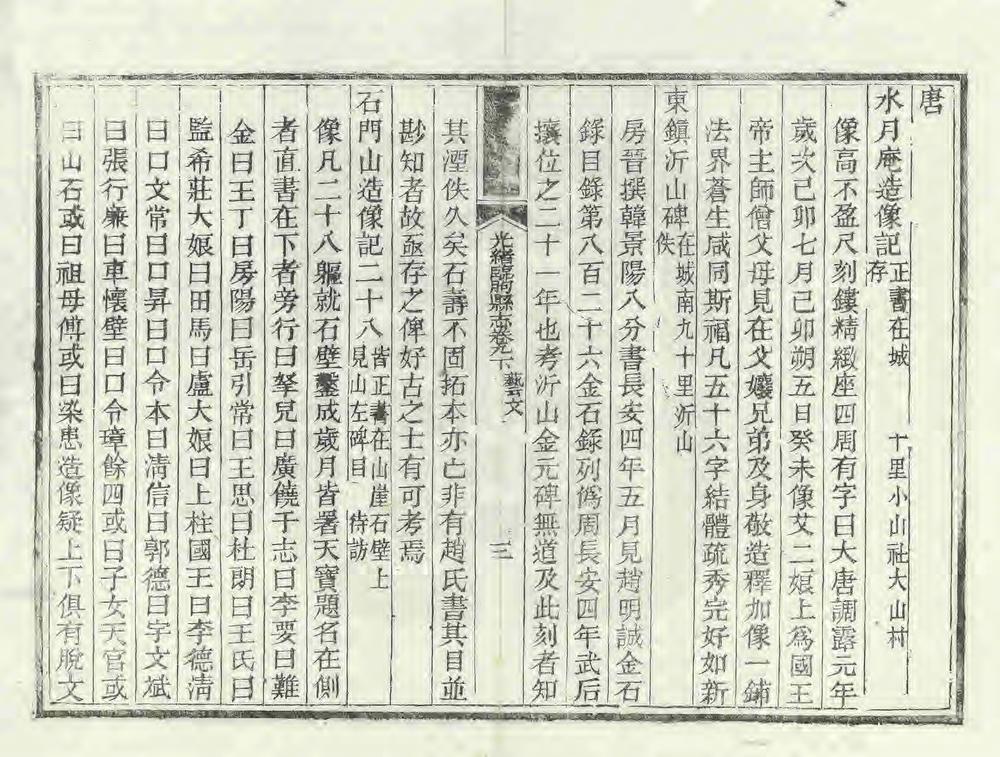 唐
水月庵造像記正書在城　十里小山社大山村存
像高不盈尺刻鏤精緻座四周有字曰大唐調露元年
歲次己卯七月己卯朔五日癸未像艾二娘上爲國王
帝主師僧父母見在父孃兄弟及身敬造釋加像一鋪
法界蒼生咸同斯福凡五十六字結體疏秀完好如新
東鎮沂山碑在城南九十里沂山佚
房晉撰韓景陽八分書長安四年五月見趙明誠金石
錄目錄第八百二十六金石錄列僞周長安四年武后
攘位之二十一年也考沂山金元碑無道及此刻者知
光緒臨朐縣志卷九下　藝文　三
其湮佚久矣石壽不固拓本亦亡非有趙氏書其目並
尠知者故亟存之俾好古之士有可考焉
石門山造像記二十八皆正書在山崖石壁上見山左碑目　待訪
像凡二十八軀就石壁鑿成歲月皆署天寶題名在側
者直書在下者旁行曰拏兒曰廣饒于志曰李要曰難
金曰王丁曰房陽曰岳引常曰王思曰杜朗曰王氏曰
監希莊大娘曰田馬曰盧大娘曰上柱國王曰李德淸
曰口文常曰口昇曰口令本曰淸信曰郭德曰字文斌
曰張行廉曰車懷壁曰口令璋餘四或曰子女天官或
曰山石或曰祖母傅或曰染患造像疑上下俱有脫文